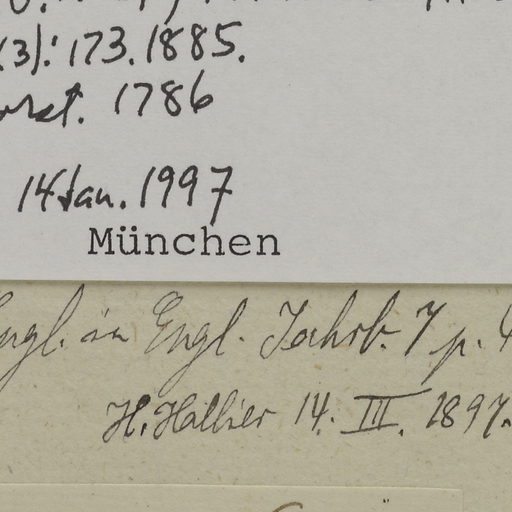 (3): 173. 1885.
1786
14 Jan. 1997
München
Engl. in Engl. Jahrb. 7 p.
H. Hallier 14. III. 1897.